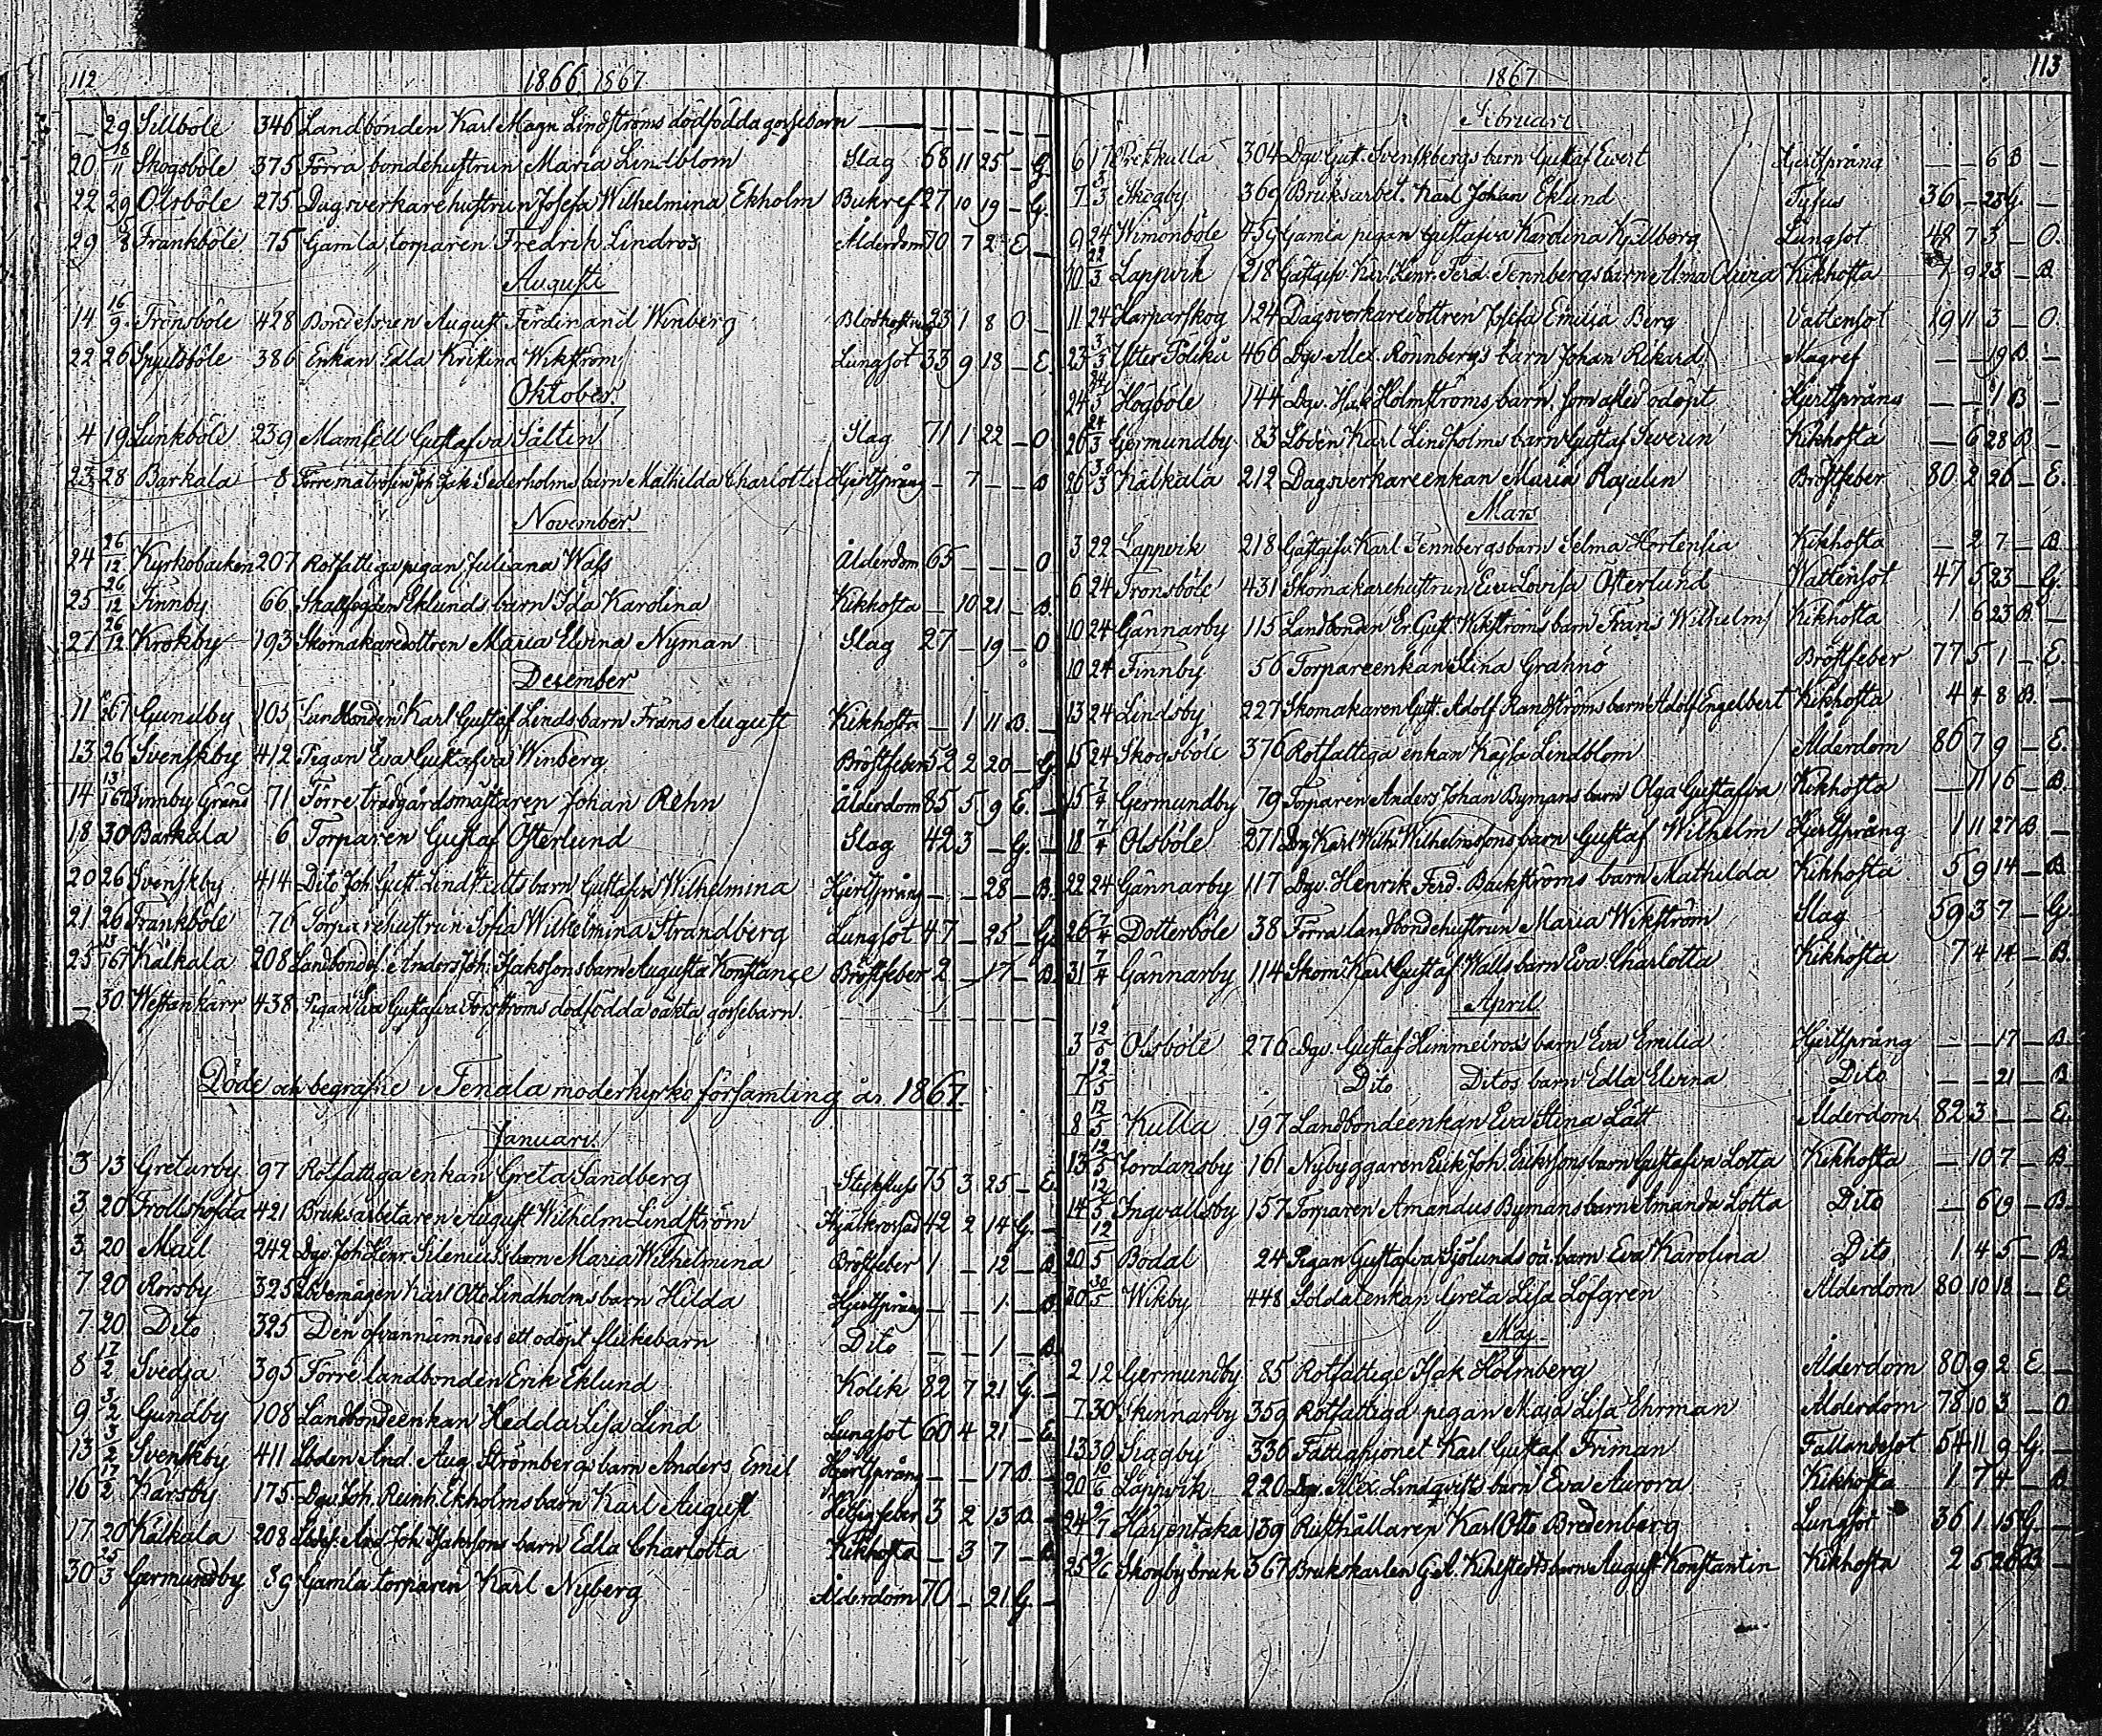 112
1866, 1867
29 Sillböle 346 Landbonden Karl Magn Lindströms dödfödda gossebarn — — — — —
20 18/11 Skogsböle 375 Förra bondehustrun Maria Lindblom Slag 68 11 25 — G.
22 29 Olsböle 275 Dagsverkarehustrun Josefa Wilhelmina Ekholm Bukref 27 10 19 — G.
29 5/8 Frankböle 75 Gamla torparen Fredrik Lindros Ålderdom 70 7 2 E —
Augusti
14 16/9 Trönsböle 428 Bondesonen August Ferdinand Winberg Blodhostning 23 1 8 O —
22 26 Spjutsböle 386 Enkan Edla Kristina Wikström Lungsot 33 9 18 — E
Oktober
4 19 Lunkböle 239 Mamsell Gustafva Saltin Slag 71 1 22 — O
23 28 Barkala 8 Förre matrosen Joh. Isak Sederholms barn Mathilda Charlotta Hjertsprång — 7 — — B
November
24 26/12 Kyrkobacken 207 Rotfattiga pigan Juliana Wass Ålderdom 65 — — — O
25 26/12 Finnby 66 Skallfogden Eklunds barn Ida Karolina Kikhosta — 10 21 — B.
27 26/12 Krokby 193 Skomakaredottren Maria Elvina Nyman Slag 27 — 19 — O
December
11 Gundby 105 Landbonden Karl Gustaf Linds barn Frans August Kikhosta — 1 11 B. —
13 26 Svenskby 412 Pigan Eva Gustafva Winberg Bröstfeber 52 2 20 — G
14 13/1 67 Finnby Gränd 71 Förre trädgårdsmästaren Johan Rehn Ålderdom 85 5 9 E. —
18 30 Barkala 6 Torparen Gustaf Österlund Slag 42 3 — G. —
20 26 Svenskby 414 Dito Joh. Gust. Lindstedts barn Gustafva Wilhelmina Hjertsprång — — 28 — B.
21 26 Frankböle 76 Torparehustrun Sofia Wilhelmina Strandberg Lungsot 47 — 25 — G.
25 13/1 67 Kälkala 208 Landbondes. Anders Joh. Isakssons barn Augusta Konstance Bröstfeber 2 — 17 — B.
— 30 Westankärr 438 Pigan Eva Gustafva Forsströms dödfödda oäkta gossebarn.
Döde och begrafne i Tenala moderkyrko församling år 1867
Januari.
3 13 Gretarby 97 Rotfattiga enkan Greta Sandberg Stickfluss 75 3 25 — E.
3 20 Trollshofda 421 Bruksarbetaren August Wilhelm Lindström 42 2 14 G. —
3 20 Mail 242 Dgv. Joh. Henr. Silenius's barn Maria Wilhelmina Bröstfeber 1 — 12 — B
7 20 Rörsby 325 Lbdemågen Karl Otto Lindholms barn Hilda Hjertsprång — — 1 — B
7 20 Dito 325 Den ofvannämndes ett odöpt flickebarn Dito — — 1 — B.
8 17/2 Svedja 395 Förre landbonden Erik Eklund Kolik 82 7 21 G. —
9 3/2 Gundby 108 Landbondeenkan Hedda Lisa Lind Lungsot 60 4 21 — E.
13 3/2 Svenskby 411 Lbden And. Aug. Strömbergs barn Anders Emil Hjertsprång — — 17 B. —
16 17/2 Karsby 175 Dgv. Joh. Reinh. Ekholms barn Karl August Hetsigfeber 3 2 13 B. —
17 20 Kälkala 208 Lbdes. And. Joh. Isakssons barn Edla Charlotta Kikhosta — 3 7 — B
30 25/3 Germundby 89 Gamla torparen Karl Nyberg Ålderdom 70 — 21 G. —
113
1867
Februari.
6 17 304 Dgv. Gust. Svenskbergs barn Gustaf Evert Hjertsprång — — 6 B —
7 3/3 Skogby 369 Bruksarbet. Karl Johan Eklund Tyfus 36 — 23 G. —
9 24 Wimonböle 459 Gamla pigan Gustafva Karolina Kjellberg Lungsot 48 7 3 — O.
10 22/3 Lappvik 218 Gästgifv. Karl Henr. Ferd. Tennbergs barn Alma Olivia Kikhosta 7 9 23 — B
11 24 Harparskog 124 Dagsverkaredottren Josefa Emilia Berg Vattensot 19 11 3 — O.
23 3/3 466 Dgv. Alex. Rönnbergs barn Johan Rikard Magref — — 19 B —
24 24/3 Högböle 144 Dgv. Holmströms barn, som afled odöpt Hjertsprång — — 1 B —
26 24/3 Germundby 83 Lbden Karl Lindholms barn Gustaf Severin Kikhosta — 6 28 B —
26 3/3 Kälkala 212 Dagsverkareenkan Maria Rosalin Bröstfeber 80 2 26 — E.
Mars
3 22 Lappvik 218 Gästgifv. Karl Tennbergs barn Selma Hortensia Kikhosta — 2 7 — B
6 24 Trönsböle 431 Skomakarehustrun Eva Lovisa Österlund Wattensot 47 5 23 — G.
10 24 Gännarby 115 Landbonden Er. Gust. Wikströms barn Frans Wilhelm Kikhosta 1 6 23 B. —
10 24 Finnby 56 Torpareenkan Stina Grahnö Bröstfeber 77 5 1 — E.
13 24 Lindsby 227 Skomakaren Gust. Adolf Randströms barn Adolf Engelbert Kikhosta 4 4 8 B. —
15 24 Skogsböle 376 Rotfattiga enkan Kajsa Lindblom Ålderdom 86 7 9 — E.
15 7/4 Germundby 79 Torparen Anders Johan Bymans barn Olga Gustafva Kikhosta — 11 16 — B.
18 7/4 Olsböle 271 Dgv Karl Wilh. Wilhelmssons barn Gustaf Wilhelm Hjertsprång 1 11 27 B —
22 24 Gännarby 117 Dgv. Henrik Ferd. Backströms barn Mathilda Kikhosta 5 9 14 — B
26 7/4 Dotterböle 38 Förra landbondehustrun Maria Wikström Slag 59 3 7 — G.
31 7/4 Gännarby 114 Skom. Karl Gustaf Walls barn Eva Charlotta Kikhosta 7 4 14 — B
April
3 12/5 Olsböle 276 Dgv. Gustaf Himmelross barn Eva Emilia Hjertsprång — — 17 — B
7 12/5 Dito Ditos barn Edla Elvina Dito — — 21 — B
8 12/5 Kulla 197 Landbondeenkan Eva Stina Lätt Ålderdom 82 3 — — E.
13 12/5 Jordansby 161 Nybyggaren Erik Joh. Erikssons barn Gustafva Lotta Kikhosta — 10 7 — B
14 12/5 Ingvallsby 157 Torparen Amandus Bymans barn Amanda Lotta Dito — 6 19 — B
20 12/5 Bodal 24 Pigan Gustafva Sjölunds oä. barn Eva Karolina Dito 1 4 5 — B
20 30/5 Wikby 448 Soldatenkan Greta Lisa Löfgren Ålderdom 80 10 18 — E
Maj.
2 12 Germundby 85 Rotfattige Isak Holmberg Ålderdom 80 9 2 E —
7 30 Skinnarby 359 Rotfattiga pigan Maja Lisa Ehrman Ålderdom 78 10 3 — O
13 30 Siggby 336 Fattighjonet Karl Gustaf Friman Fallandesot 54 11 9 G. —
20 10/6 Lappvik 220 Dgv. Alex. Lindqvists barn Eva Aurora Kikhosta 1 7 4 — B
24 Harjentaka 139 Rusthållaren Karl Otto Bredenberg Lungsot 36 1 15 G —
25 9/6 Skogby bruk 367 Brukskarlen G. A. Kihlstedts barn August Konstantin Kikhosta 2 5 28 B —